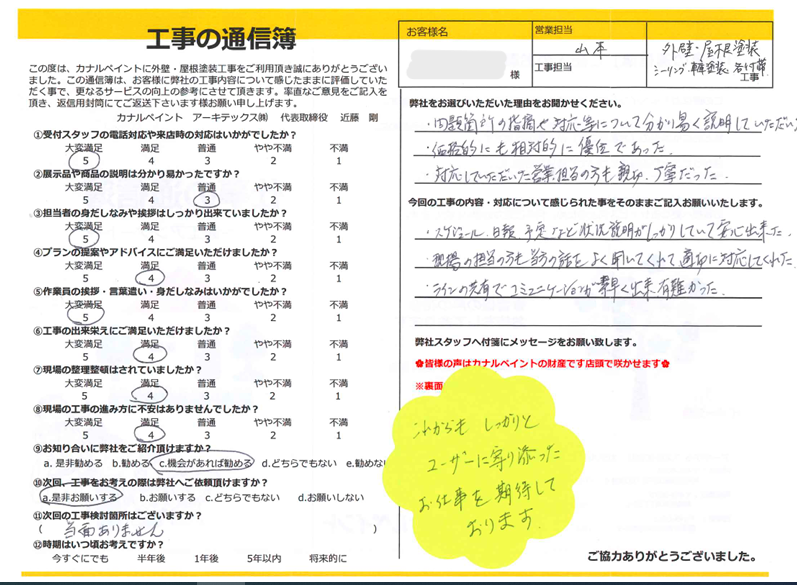 工事の通信簿
この度は、カナルペイントに外壁・屋根塗装工事をご利用頂き誠にありがとうござい
ました。この通信簿は、お客様に弊社の工事内容について感じたままに評価していた
だく事で、更なるサービスの向上の参考にさせて頂きます。率直なご意見をご記入を
頂き、返信用封筒にてご返送下さいます様お願い申し上げます。
カナルペイント アーキテックス㈱ 代表取締役 近藤 剛
①受付スタッフの電話対応や来店時の対応はいかがでしたか？
大変満足 満足 普通 やや不満 不満
5 4 3 2 1
②展示品や商品の説明は分かり易かったですか？
大変満足 満足 普通 やや不満 不満
5 4 3 2 1
③担当者の身だしなみや挨拶はしっかり出来ていましたか？
大変満足 満足 普通 やや不満 不満
5 4 3 2 1
④プランの提案やアドバイスにご満足いただけましたか？
大変満足 満足 普通 やや不満 不満
5 4 3 2 1
⑤作業員の挨拶・言葉遣い・身だしなみはいかがでしたか？
大変満足 満足 普通 やや不満 不満
5 4 3 2 1
⑥工事の出来栄えにご満足いただけましたか？
大変満足 満足 普通 やや不満 不満
5 4 3 2 1
⑦現場の整理整頓はされていましたか？
大変満足 満足 普通 やや不満 不満
5 4 3 2 1
⑧現場の工事の進み方に不安はありませんでしたか？
大変満足 満足 普通 やや不満 不満
5 4 3 2 1
⑨お知り合いに弊社をご紹介頂けますか？
a. 是非勧める b.勧める c.機会があれば勧める d.どちらでもない e.勧めな
⑩次回、工事をお考えの際は弊社へご依頼頂けますか？
a.是非お願いする b.お願いする c.どちらでもない d.お願いしない
⑪次回の工事検討箇所はございますか？
( 当面ありません )
⑫時期はいつ頃お考えですか？
今すぐにでも 半年後 1年後 5年以内 将来的に
お客様名
様
営業担当
山本
工事担当
外壁・屋根塗装
シーリング 塗装
工事
弊社をお選びいただいた理由をお聞かせください。
・問題箇所の指摘や対応等について分かり易く説明していただい
・価格的にも相対的に優位であった
・対応していただいた営業担当の方も親切、丁寧だった
今回の工事の内容・対応について感じられた事をそのままご記入お願いいたします。
・スケジュール、日報、予定など状況説明がしっかりしていて安心出来た
・現場の担当の方も当方の話をよく聞いてくれて適切に対応してくれた
・ラインの共有でコミュニケーションが素早く出来有難かった
弊社スタッフへ付箋にメッセージをお願い致します。
✿皆様の声はカナルペイントの財産です店頭で咲かせます✿
※裏面
これからも しっかりと
ユーザーに寄り添った
お仕事を期待して
おります。
ご協力ありがとうございました。